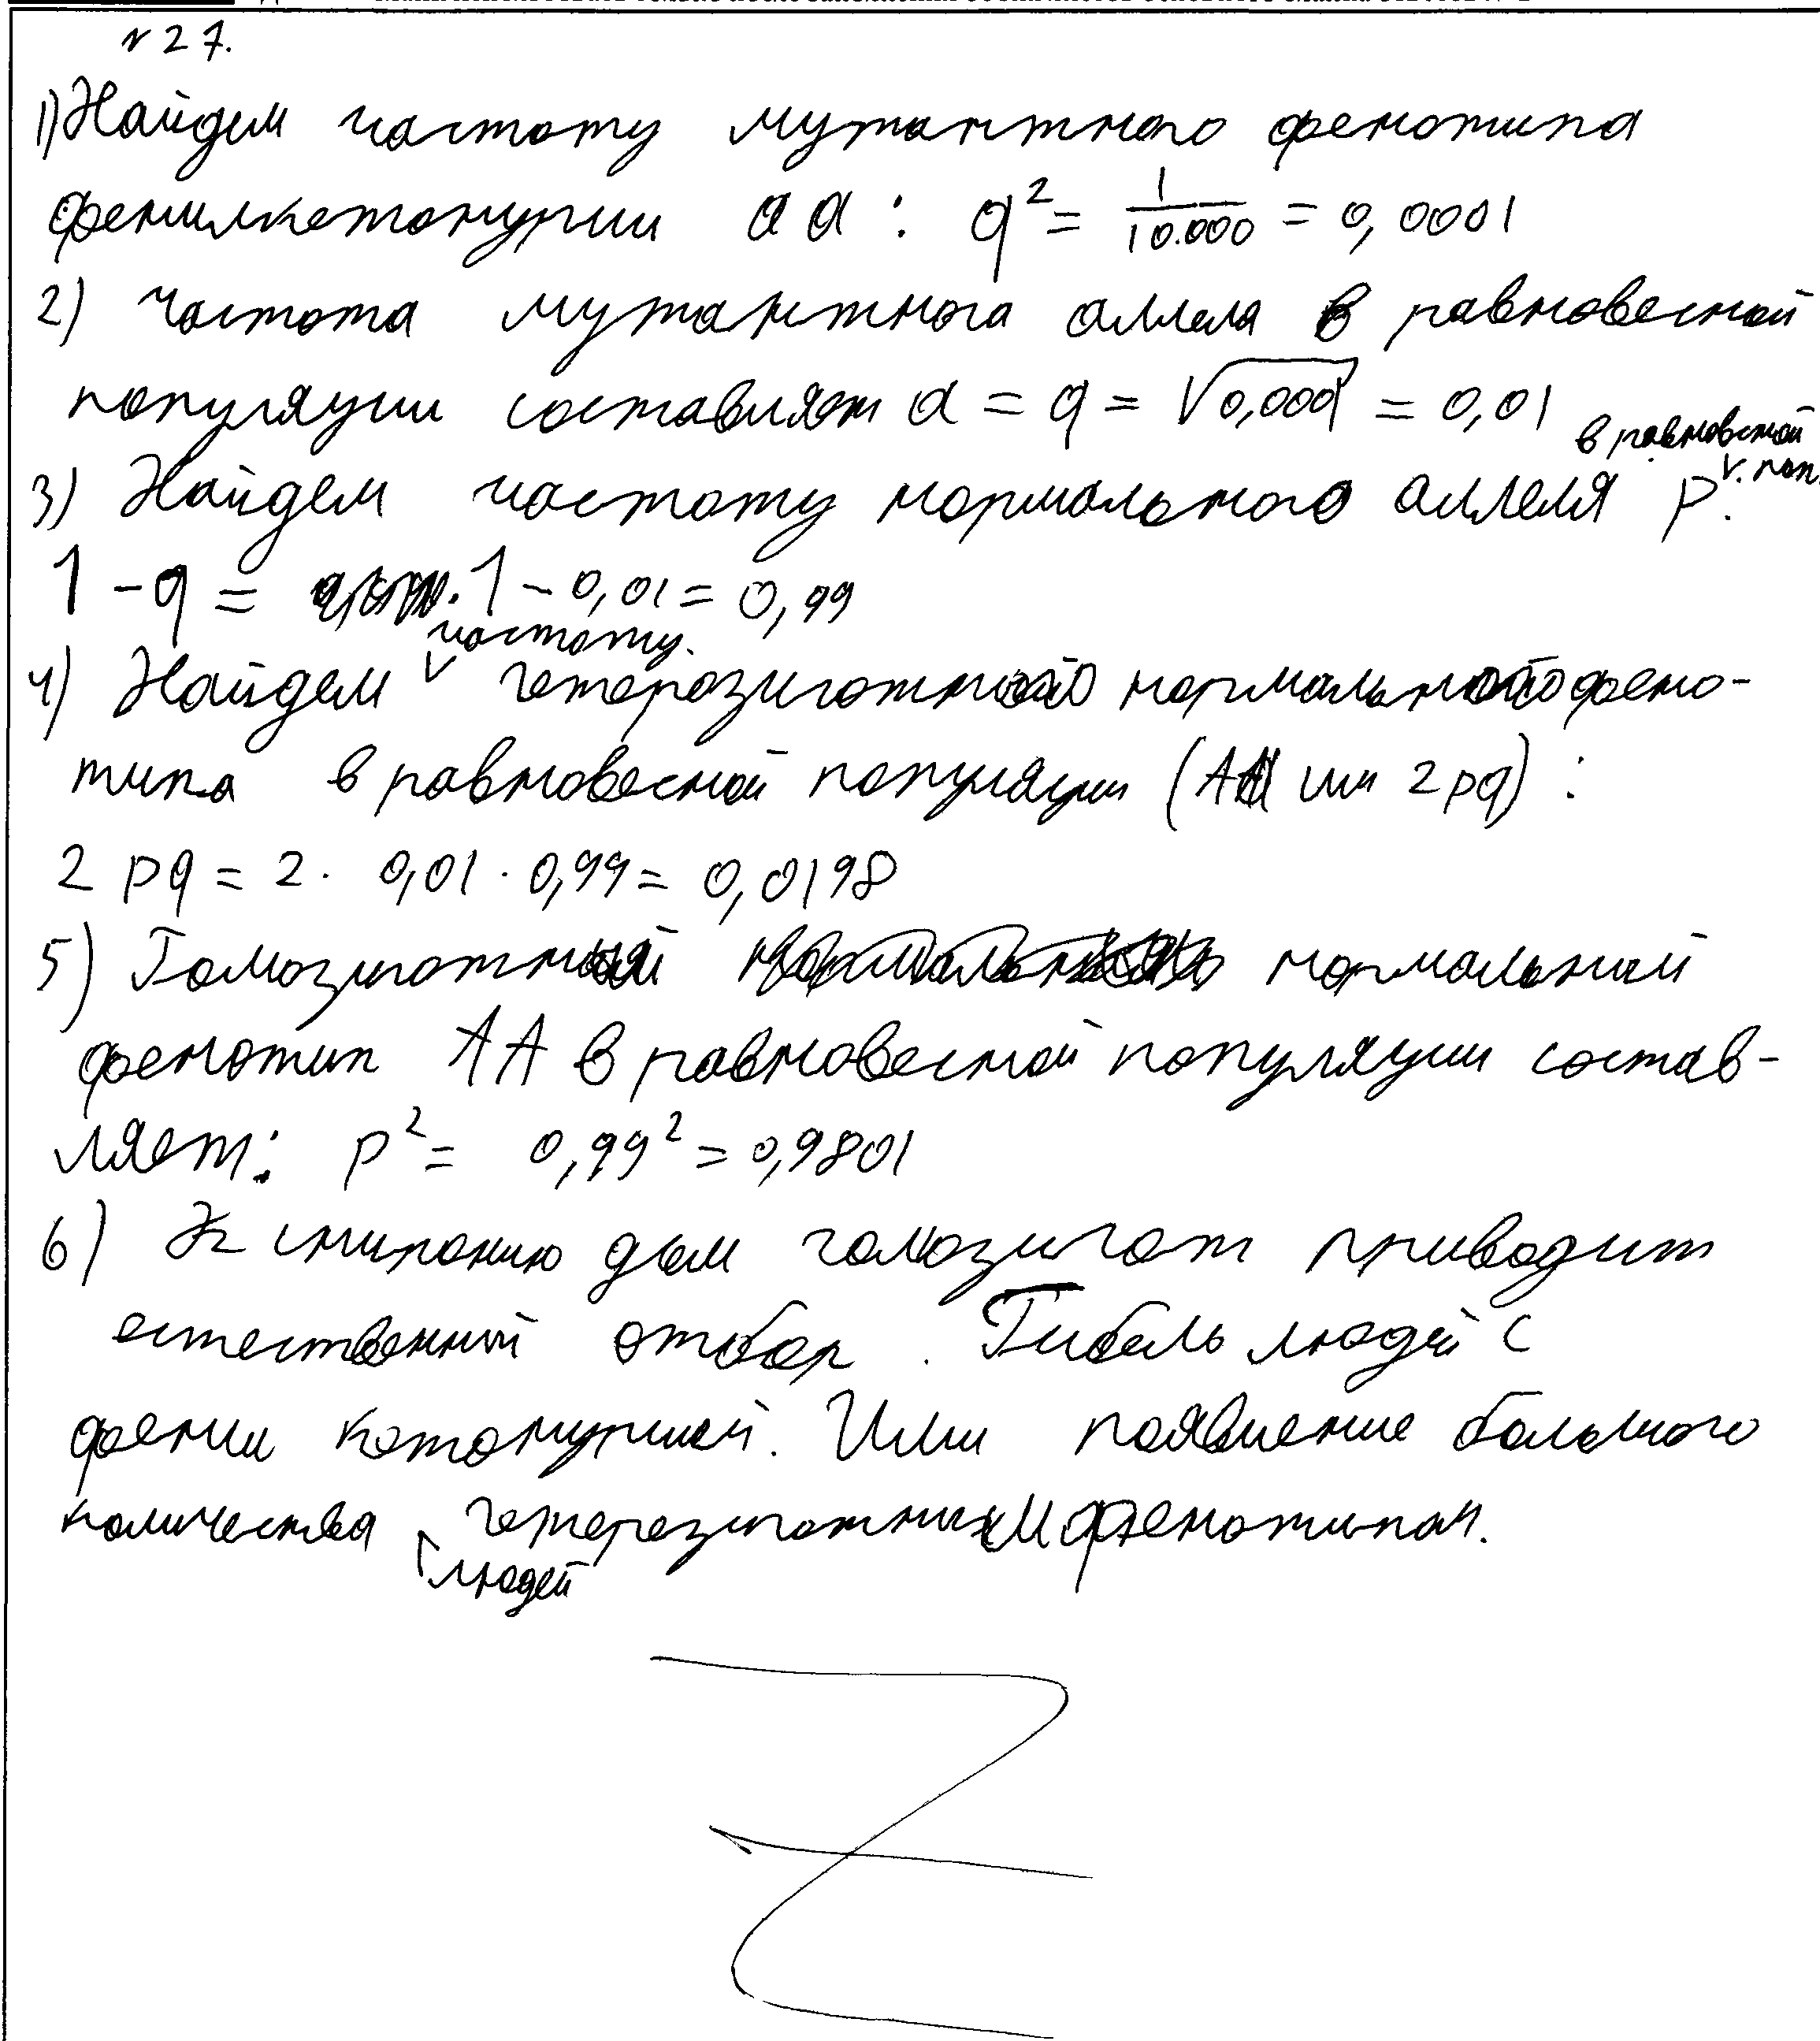 № 27.
1) Найдем частоту мутантного фенотипа
фенилкетонурии aa : q² = 1/10.000 = 0,0001
2) Частота мутантного аллеля в равновесной
популяции составляет a = q = √0,0001 = 0,01
3) Найдем частоту нормального аллеля p в равновесной поп.
1 - q = 1 - 0,01 = 0,99
4) Найдем частоту гетерозиготного нормального фено-
типа в равновесной популяции (Aa или 2pq) :
2 pq = 2 · 0,01 · 0,99 = 0,0198
5) Гомозиготный нормальный
фенотип AA в равновесной популяции состав-
ляет: p² = 0,99² = 0,9801
6) К гомозигот приводит
естественный отбор. Гибель людей с
фенилкетонурией. Или появление большого
количества людей гетерозиготным фенотипом.